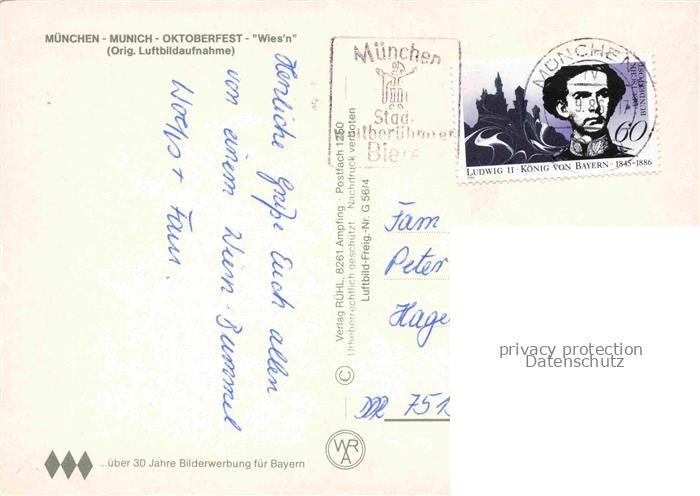 MÜNCHEN - MUNICH - OKTOBERFEST - "Wies'n"
(Orig. Luftbildaufnahme)
Herzliche Grüße Euch allen
von einem Wiesn-Bummel
+ Fam.
München
Stadt
weltberühmter
Biere
MÜNCHEN
60
LUDWIG II · KÖNIG VON BAYERN · 1845-1886
DEUTSCHE BUNDESPOST
Verlag RÜHL, 8261 Ampfing · Postfach 1250
Urheberrechtlich geschützt Nachdruck verboten
Luftbild-Freig.-Nr. G 56/4
©
Fam
Peter
Hage
DDR 751
WRA
...über 30 Jahre Bilderwerbung für Bayern
privacy protection
Datenschutz